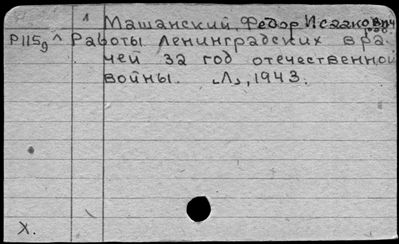 ^ Машанский, Федор Исаакович
ред
Р115д ^ Работы ленинградских вра-
чей за год отечественной
войны. Л, 1943.
X.